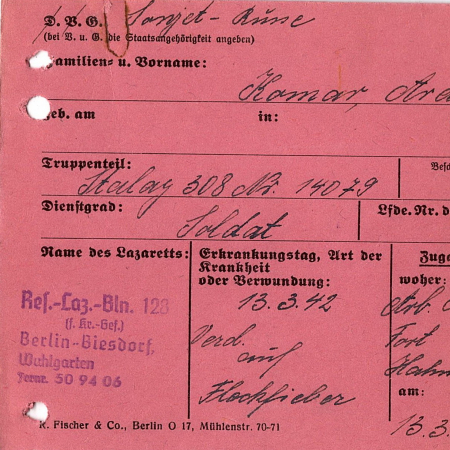 D. V. G. Sowjet-Russe
(bei V. u. G. die Staatsangehörigkeit angeben)
Familien- u. Vorname:
Komar, Ar
Geb. am in:
Truppenteil:
Stalag 308 Nr. 14079
Dienstgrad: Lfde. Nr. d
Soldat
Name des Lazaretts:
Ref.-Laz.-Bln. 128
(f. Kr.-Gef.)
Berlin-Biesdorf,
Wuhlgarten
Fernr. 50 94 06
Erkrankungstag, Art der
Krankheit
oder Verwundung:
13.3.42
Verd.
auf
Fleckfieber
Zuga
woher:
Arb.
Fort
Hahn
am:
13.3.
R. Fischer & Co., Berlin O 17, Mühlenstr. 70-71